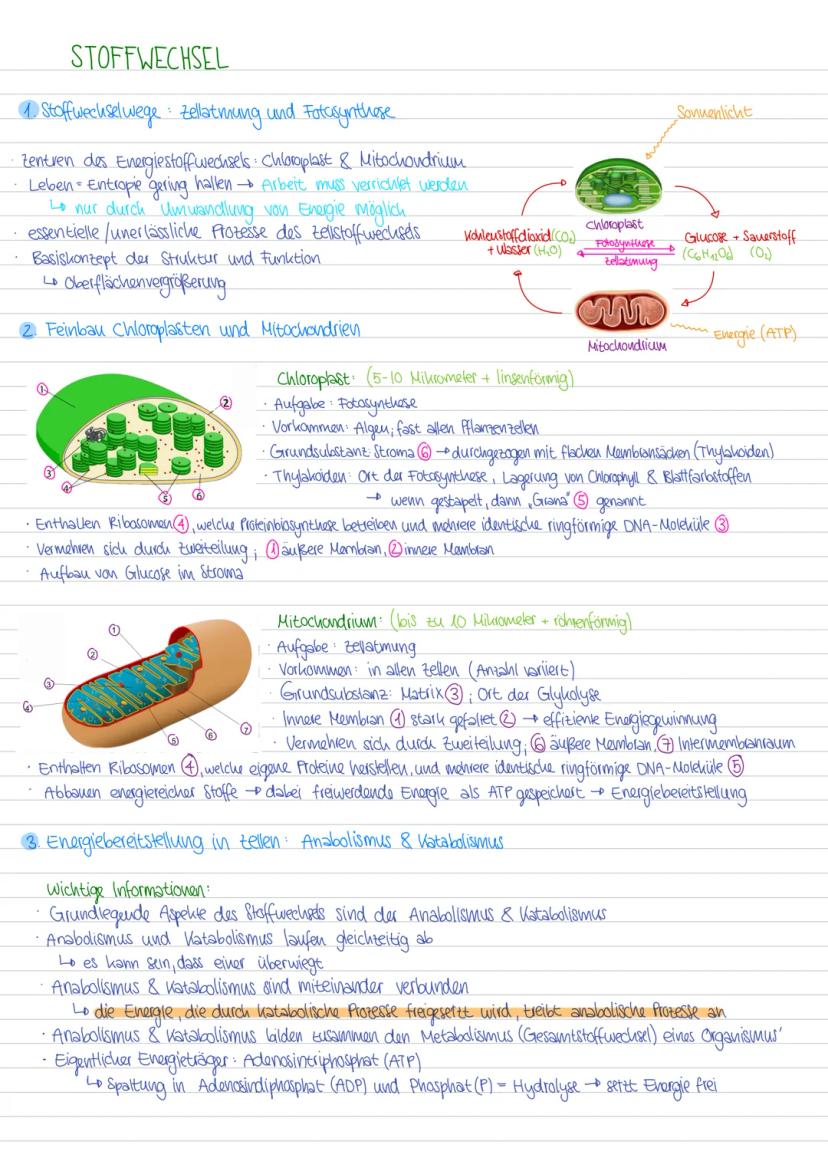 STOFFWECHSEL
1. Stoffwechselwege: Zellatmung und Fotosynthese
Sonnenlicht
· Zentren des Energiestoffwechsels: Chloroplast & Mitochondrium
· Leben = Entropie gering halten → Arbeit muss verrichtet werden
↳ nur durch Umwandlung von Energie möglich
· essentielle/unerlässliche Prozesse des Zellstoffwechsels
· Basiskonzept der Struktur und Funktion
↳ Oberflächenvergrößerung
Chloroplast
Kohlenstoffdioxid (CO₂)
+ Wasser (H₂O)
Fotosynthese
Zellatmung
Glucose + Sauerstoff
(C₆H₁₂O₆) (O₂)
Mitochondrium
Energie (ATP)
2. Feinbau Chloroplasten und Mitochondrien
1
2
3
4
5
6
Chloroplast: (5-10 Mikrometer + linsenförmig)
· Aufgabe: Fotosynthese
· Vorkommen: Algen; fast allen Pflanzenzellen
· Grundsubstanz Stroma ⑥ → durchgezogen mit flachen Membransäcken (Thylakoiden)
· Thylakoiden: Ort der Fotosynthese, Lagerung von Chlorophyll & Blattfarbstoffen
→ wenn gestapelt, dann „Grana" ⑤ genannt
· Enthalten Ribosomen ④, welche Proteinbiosynthese betreiben und mehrere identische ringförmige DNA-Moleküle ③
· Vermehren sich durch Zweiteilung; ① äußere Membran, ② innere Membran
· Aufbau von Glucose im Stroma
1
2
3
4
5
6
7
Mitochondrium: (bis zu 10 Mikrometer + röhrenförmig)
· Aufgabe: Zellatmung
· Vorkommen: in allen Zellen (Anzahl variiert)
· Grundsubstanz: Matrix ③; Ort der Glykolyse
· Innere Membran ① stark gefaltet ② → effiziente Energiegewinnung
· Vermehren sich durch Zweiteilung; ⑥ äußere Membran, ⑦ Intermembranraum
· Enthalten Ribosomen ④, welche eigene Proteine herstellen, und mehrere identische ringförmige DNA-Moleküle ⑤
· Abbauen energiereicher Stoffe → dabei freiwerdende Energie als ATP gespeichert → Energiebereitstellung
3. Energiebereitstellung in Zellen: Anabolismus & Katabolismus
Wichtige Informationen:
· Grundlegende Aspekte des Stoffwechsels sind der Anabolismus & Katabolismus
· Anabolismus und Katabolismus laufen gleichzeitig ab
↳ es kann sein, dass einer überwiegt
· Anabolismus & Katabolismus sind miteinander verbunden
↳ die Energie, die durch katabolische Prozesse freigesetzt wird, treibt anabolische Prozesse an
· Anabolismus & Katabolismus bilden zusammen den Metabolismus (Gesamtstoffwechsel) eines Organismus'
· Eigentlicher Energieträger: Adenosintriphosphat (ATP)
↳ Spaltung in Adenosindiphosphat (ADP) und Phosphat (P) = Hydrolyse → setzt Energie frei